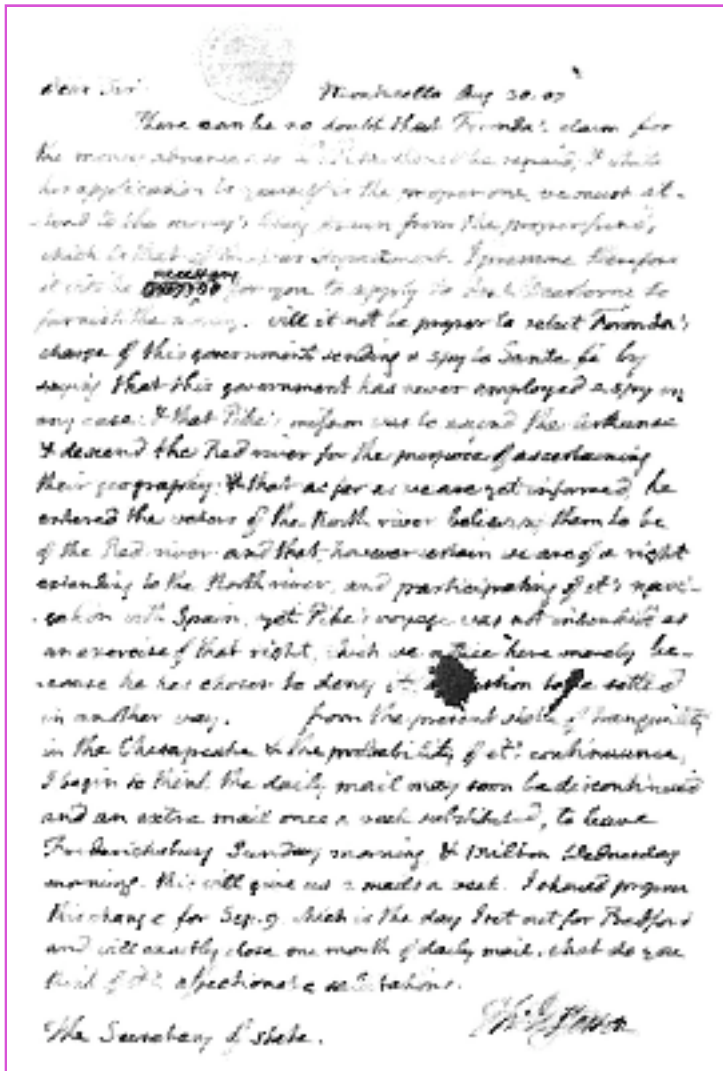 Dear Sir Monticello Aug 30. 07
There can be no doubt that Foronda's claim for
the money advanced to Lt. Pike should be repaid, & while
his application to yourself is the proper one, we must at-
-tend to the money's being drawn from the proper fund,
which is that of the war department. I presume therefore
it will be necessary for you to apply to Genl. Dearborne to
furnish the money. will it not be proper to rebut Foronda's
charge of this government sending a spy to Santa fé by
saying that this government has never employed a spy in
any case; & that Pike's mission was to ascend the Arkansa
& descend the Red river for the purpose of ascertaining
their geography; & that as far as we are yet informed, he
entered the waters of the North river believing them to be
of the Red river and that, however certain we are of a right
extending to the North river, and participating of it's navi-
-gation with Spain, yet Pike's voyage was not intended as
an exercise of that right, which we notice here merely be-
-cause he has chosen to deny it, a question to be settled
in another way. from the present state of tranquility
in the Chesapeake & the probability of it's continuance,
I begin to think the daily mail may soon be discontinued
and an extra mail once a week substituted, to leave
Fredericksburg Sunday morning, & Milton Wednesday
morning. this will give us 2 mails a week. I should propose
this change for Sep. 9. which is the day I set out for Bedford
and will exactly close one month of daily mail. what do you
think of it? affectionate salutations.
Th: Jefferson
The Secretary of state.